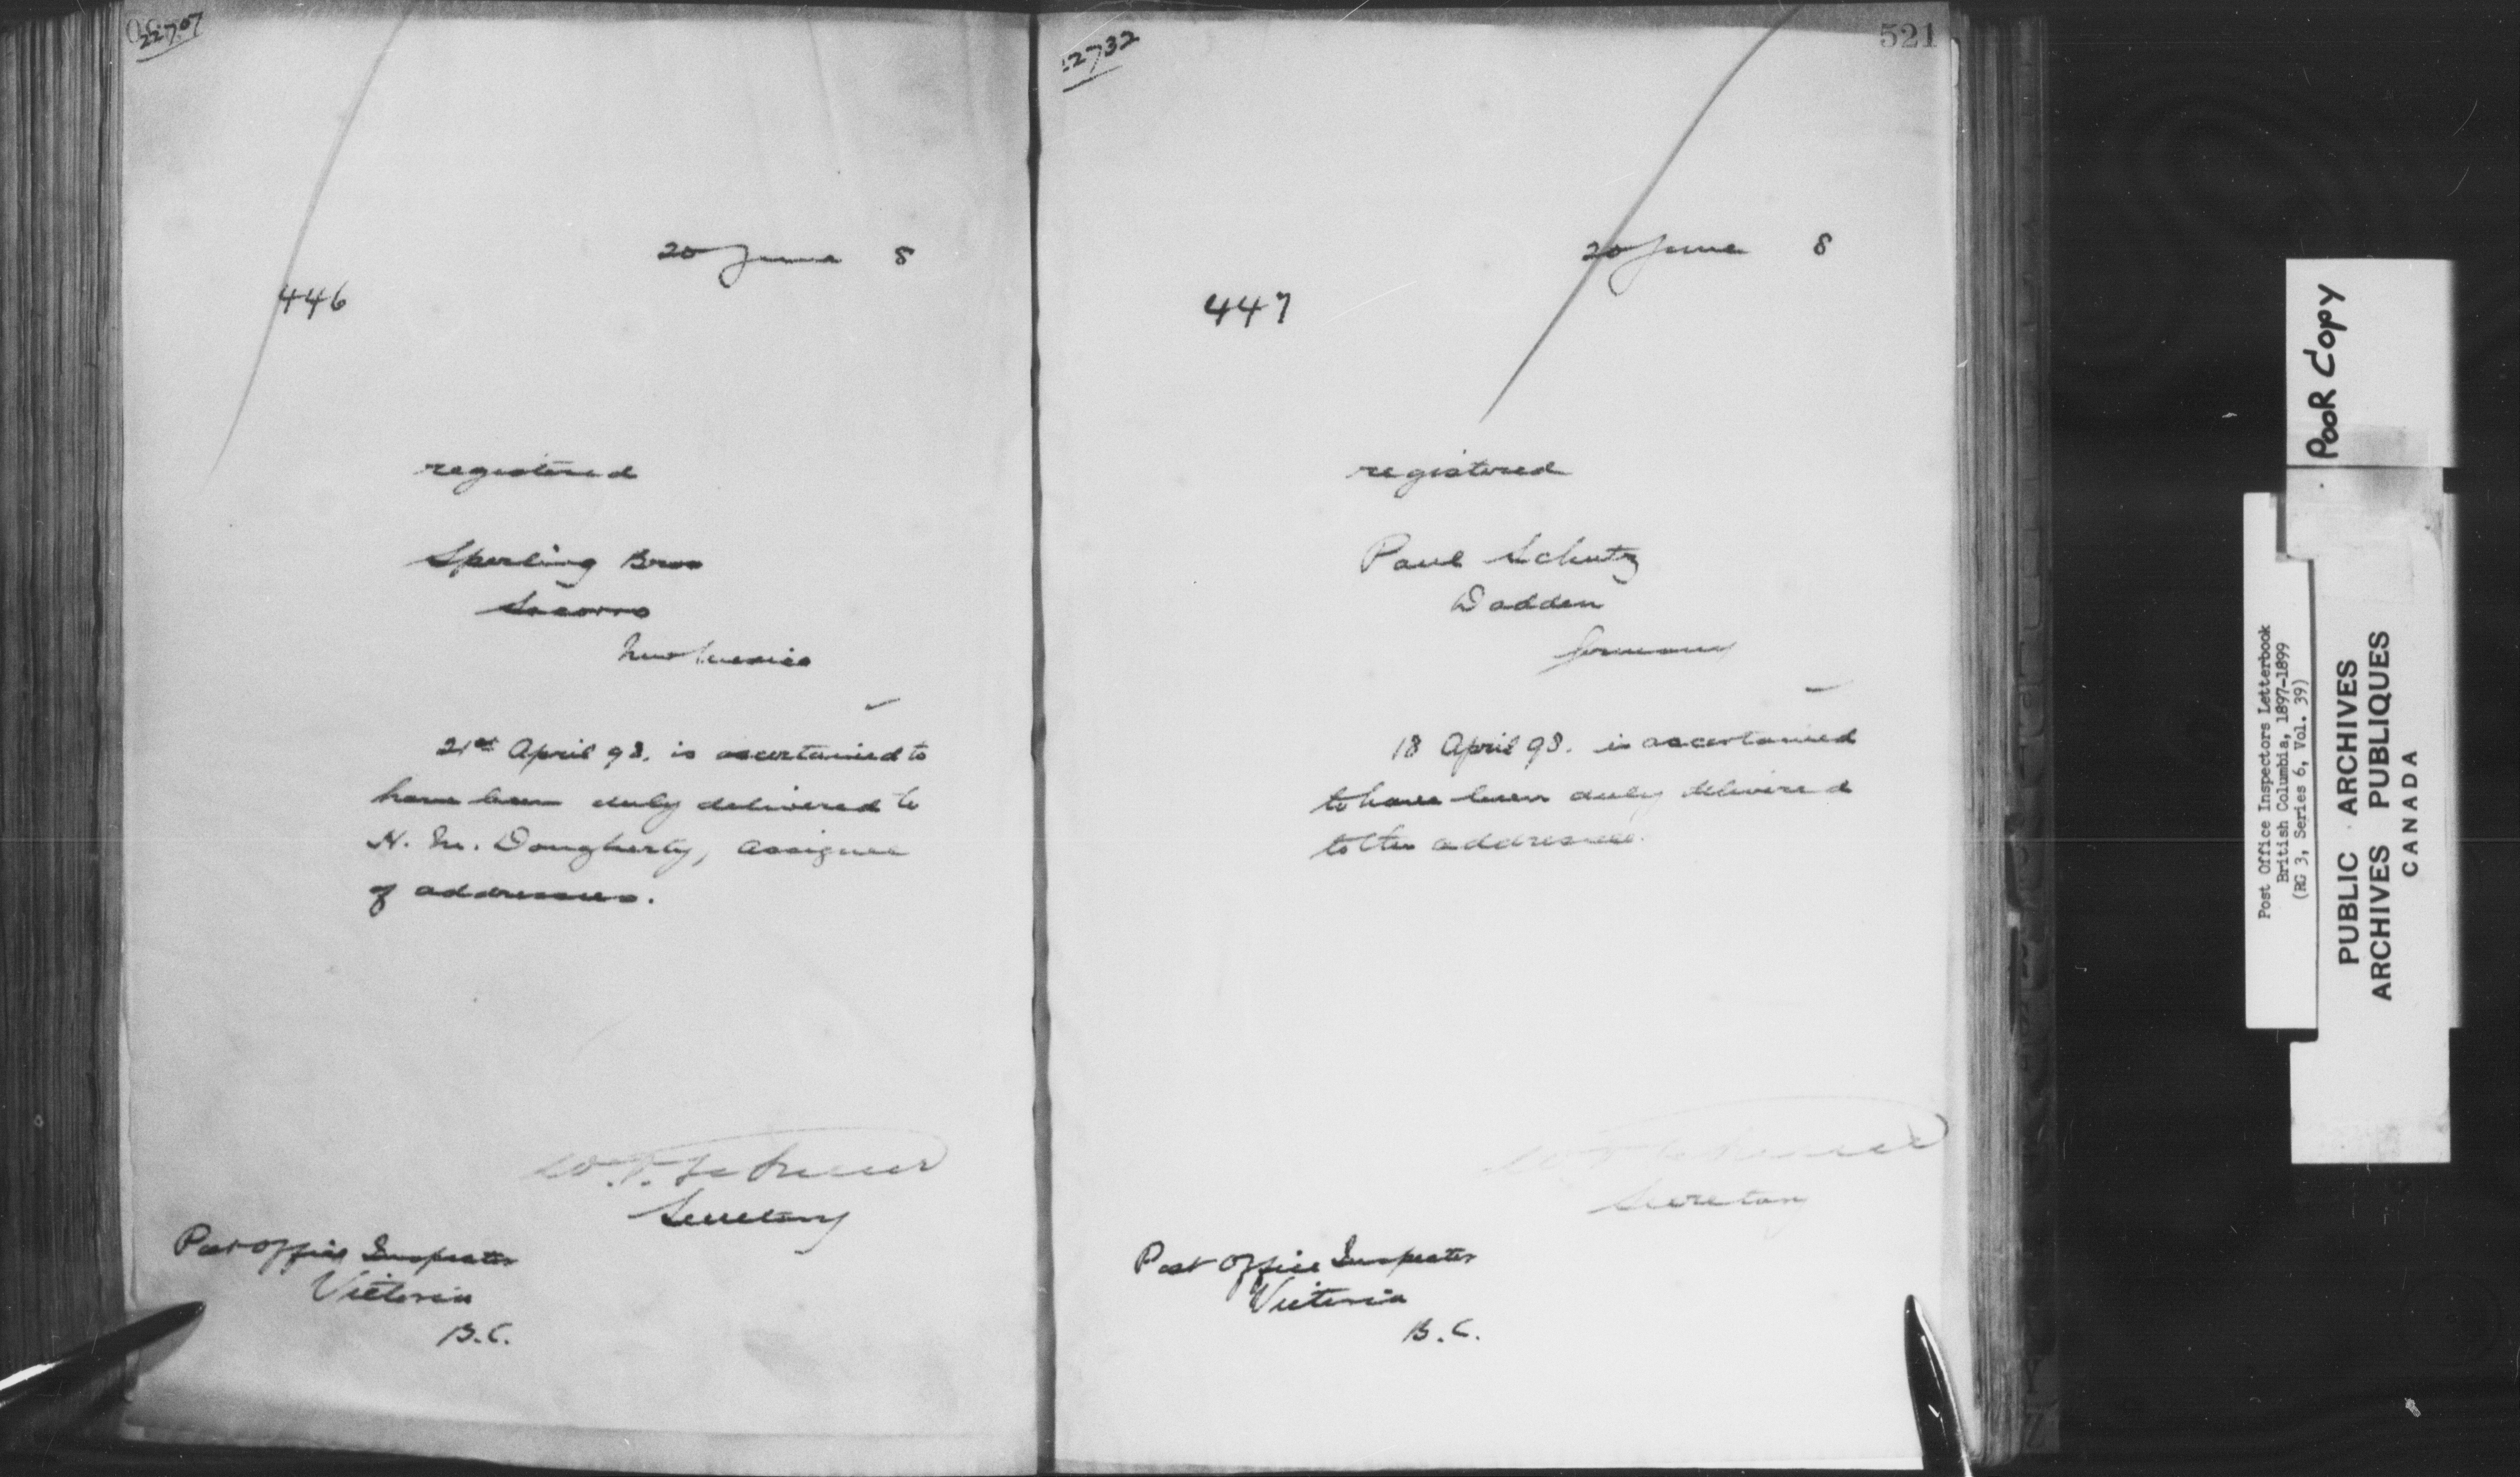 22707
20 June 8
446
registered
Sperling Bros
Socorro
New Mexico
21st April 98. is ascertained to
have been duly delivered to
N. M. Dougherty, assignee
of addressees.
Secretary
Post Office Inspector
Victoria
B.C.
2732
521
20 June 8
447
registered
Paul Schutz
Dadden
Germany
18 April 98. is ascertained
to have been duly delivered
to the addressee.
Secretary
Post Office Inspector
Victoria
B.C.
POOR COPY
Post Office Inspectors Letterbook
British Columbia, 1897-1899
(RG 3, Series 6, Vol. 39)
PUBLIC ARCHIVES
ARCHIVES PUBLIQUES
CANADA